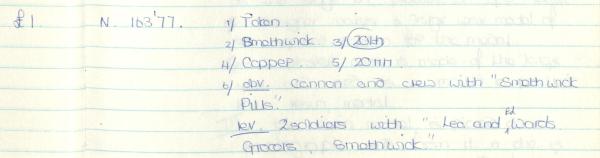 £1. N. 163'77. 1/ Token
2/ Smethwick 3/ 20th
4/ Copper 5/ 20mm
6/ obv. Cannon and crew with "Smethwick
Pills."
rev. 2 soldiers with "Lea and Edwards.
Grocers, Smethwick"